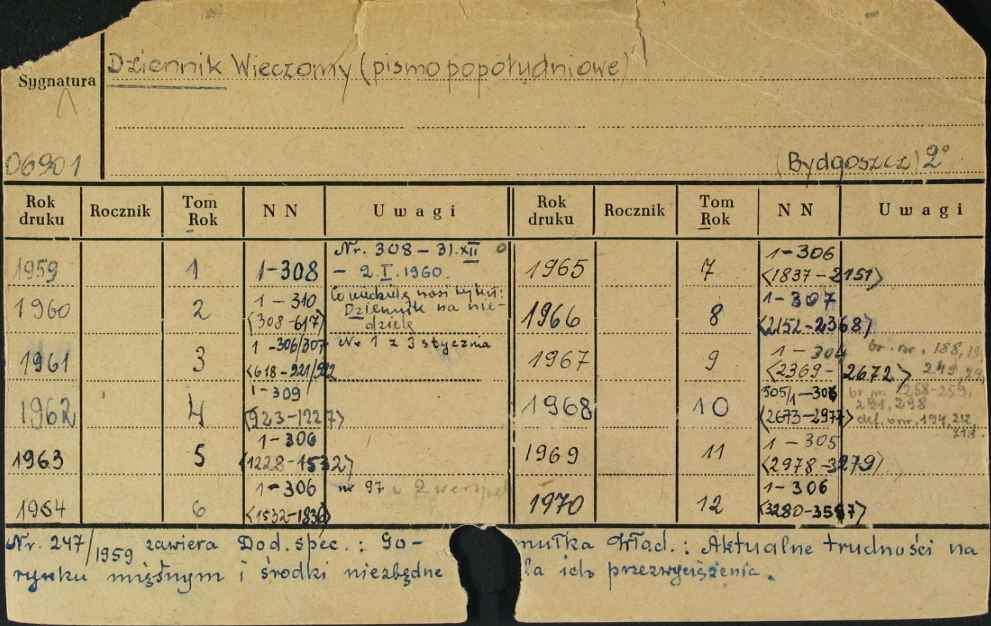 Dziennik Wieczorny (pismo popołudniowe)
Sygnatura
06901
(Bydgoszcz) 2°
Rok druku Rocznik Tom Rok NN Uwagi Rok druku Rocznik Tom Rok NN Uwagi
1959 1 1-308 Nr. 308 – 31.XII – 2.I.1960.
1960 2 1-310 <308-617> Co niedzielę nosi tytuł: Dziennik na niedzielę
1961 3 1-306/307 <618-921/922 Nr 1 z 3 stycznia
1962 4 1-309 <923-1227>
1963 5 1-306 <1228-1532>
1964 6 1-306 <1532-1836> nr 97 w 2
1965 7 1-306 <1837-2151>
1966 8 1-307 <2152-2368>
1967 9 1-304 <2369-2672> br. nr. 188, 249,
1968 10 305/1-306 <2673-2977> br. nr 258-259, 291, 298 def. nr. 194, 212,
1969 11 1-305 <2978-3279>
1970 12 1-306 <3280-3587>
Nr. 247/1959 zawiera Dod. spec.: Go- mułka Wład.: Aktualne trudności na
rynku mięsnym i środki niezbędne la ich przezwyciężenia.